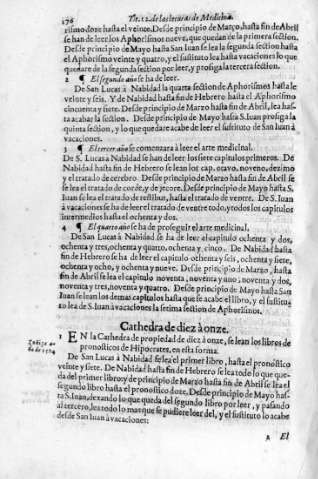 176 Tit.12.de las lecturas de Medicina.
risimo doze hasta el veinte. Desde principio de Março, hasta fin de Abril
se han de leer los Aphorismos nueve, que quedan de la primera section.
Desde principio de Mayo hasta San Iuan se lea la segunda section hasta
el Aphorismo veinte y quatro, y el sustituto lea hasta vacaciones lo que
quedare de la segunda section por leer, y prosiga la tercera section.
2 ¶ El segundo año se ha de leer.
De San Lucas à Nabidad la quarta section de Aphorismos hasta le
veinte y seis. Y de Nabidad hasta fin de Hebrero hasta el Aphorismo
cincuenta y siete. Desde principio de Março hasta fin de Abril, lea has-
ta acabar la section. Desde principio de Mayo hasta S. Iuan prosiga la
quinta section, y lo que quedare acabe de leer el sustituto de San Iuan à
vacaciones.
3 ¶ El tercer año se comentara à leer el arte medicinal.
De S. Lucas à Nabidad se han de leer los siete capitulos primeros. De
Nabidad hasta fin de Hebrero se lean los cap. octavo, noveno, dezimo
y el tratado de cerebro. Desde principio de Março hasta fin de Abril se
se lea el tratado de corde, y de jecore. Desde principio de Mayo hasta S.
Iuan se lea el tratado de testibus, hasta el tratado de ventre. De S. Iuan
à vacaciones se ha de leer el tratado de ventre todo, y todos los capitulos
intermedios hasta el ochenta y dos.
4 ¶ El quarto año se ha de proseguir el arte medicinal.
De San Lucas à Nabidad se ha de leer el capitulo ochenta y dos,
ochenta y tres, ochenta y quatro, ochenta y cinco. De Nabidad hasta
fin de Hebrero se ha de leer el capitulo ochenta y seis, ochenta y siete,
ochenta y ocho, y ochenta y nueve. Desde principio de Março, hasta
fin de Abril se lea el capitulo noventa, noventa y uno, noventa y dos,
noventa y tres, noventa y quatro. Desde principio de Mayo hasta San
Iuan se lean los demas capitulos hasta que se acabe el libro, y el sustituto
de San Iuan à vacaciones lea la setima section de Aphorismos.
Cathedra de diez à onze.
1 EN la Cathedra de propiedad de diez à onze, se lean los libros de
pronostico de Hipocrates, en esta forma.
De San Lucas à Nabidad se lea el primer libro, hasta el pronostico
veinte y siete. De Nabidad hasta fin de Hebrero se lea todo lo que que-
da del primer libro y de principio de Março hasta fin de Abril se lea el
segundo libro hasta el pronostico doze. Desde principio de Mayo has-
ta S. Iuan, dexando lo que queda del segundo libro por leer, y pasando
al tercero, lea todo lo mas que se pudiere leer del, y el sustituto lo acabe
desde San Iuan à vacaciones:
A El